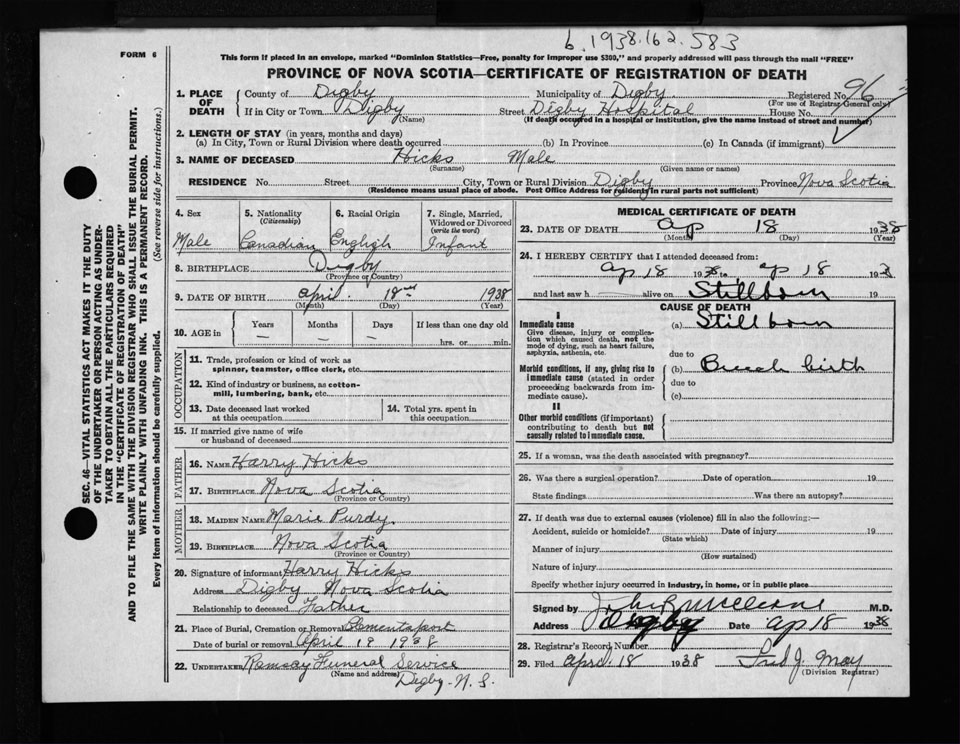 b. 1938.162.583
FORM 6
This form if placed in an envelope, marked "Dominion Statistics—Free, penalty for improper use $300," and properly addressed will pass through the mail "FREE"
PROVINCE OF NOVA SCOTIA—CERTIFICATE OF REGISTRATION OF DEATH
1. PLACE OF DEATH County of Digby Municipality of Digby Registered No. 96
(For use of Registrar General only)
If in City or Town Digby Street Digby Hospital House No.
(Name) (If death occurred in a hospital or institution, give the name instead of street and number)
2. LENGTH OF STAY (in years, months and days)
(a) In City, Town or Rural Division where death occurred (b) In Province (c) In Canada (if immigrant)
3. NAME OF DECEASED Hicks Male
(Surname) (Given name or names)
RESIDENCE No. Street City, Town or Rural Division Digby Province Nova Scotia
(Residence means usual place of abode. Post Office Address for residents in rural parts not sufficient)
4. Sex 5. Nationality (Citizenship) 6. Racial Origin 7. Single, Married, Widowed or Divorced (write the word)
Male Canadian English Infant
8. BIRTHPLACE Digby
(Province or Country)
9. DATE OF BIRTH April 18 1938
(Month) (Day) (Year)
10. AGE in Years Months Days If less than one day old
— — — hrs. or min.
OCCUPATION
11. Trade, profession or kind of work as spinner, teamster, office clerk, etc.
12. Kind of industry or business, as cotton-mill, lumbering, bank, etc.
13. Date deceased last worked at this occupation 14. Total yrs. spent in this occupation
15. If married give name of wife or husband of deceased
FATHER
16. NAME Harry Hicks
17. BIRTHPLACE Nova Scotia
(Province or Country)
MOTHER
18. MAIDEN NAME Marie Purdy
19. BIRTHPLACE Nova Scotia
(Province or Country)
20. Signature of informant Harry Hicks
Address Digby Nova Scotia
Relationship to deceased Father
21. Place of Burial, Cremation or Removal Clementsport
Date of burial or removal April 19 1938
22. UNDERTAKER Ramsay Funeral Service
(Name and address)
Digby - N. S.
MEDICAL CERTIFICATE OF DEATH
23. DATE OF DEATH Ap 18 1938
(Month) (Day) (Year)
24. I HEREBY CERTIFY that I attended deceased from:
Ap 18 1938 to Ap 18 193
and last saw h alive on Stillborn 19
CAUSE OF DEATH
I
Immediate cause (a) Stillborn
Give disease, injury or complication which caused death, not the mode of dying, such as heart failure, asphyxia, asthenia, etc.
due to
Morbid conditions, if any, giving rise to immediate cause (stated in order proceeding backwards from immediate cause). (b) Breech birth
due to
(c)
II
Other morbid conditions (if important) contributing to death but not causally related to immediate cause.
25. If a woman, was the death associated with pregnancy?
26. Was there a surgical operation? Date of operation 19
State findings Was there an autopsy?
27. If death was due to external causes (violence) fill in also the following:—
Accident, suicide or homicide? Date of injury 19
(State which)
Manner of injury
(How sustained)
Nature of injury
Specify whether injury occurred in industry, in home, or in public place
Signed by M.D.
Address Digby Date Ap 18 1938
28. Registrar's Record Number
29. Filed April 18 1938 Fred J. May
(Division Registrar)
SEC. 46—VITAL STATISTICS ACT MAKES IT THE DUTY
OF THE UNDERTAKER OR PERSON ACTING AS UNDER-
TAKER TO OBTAIN ALL THE PARTICULARS REQUIRED
IN THE "CERTIFICATE OF REGISTRATION OF DEATH"
AND TO FILE THE SAME WITH THE DIVISION REGISTRAR WHO SHALL ISSUE THE BURIAL PERMIT.
WRITE PLAINLY WITH UNFADING INK. THIS IS A PERMANENT RECORD.
Every item of information should be carefully supplied. (See reverse side for instructions.)